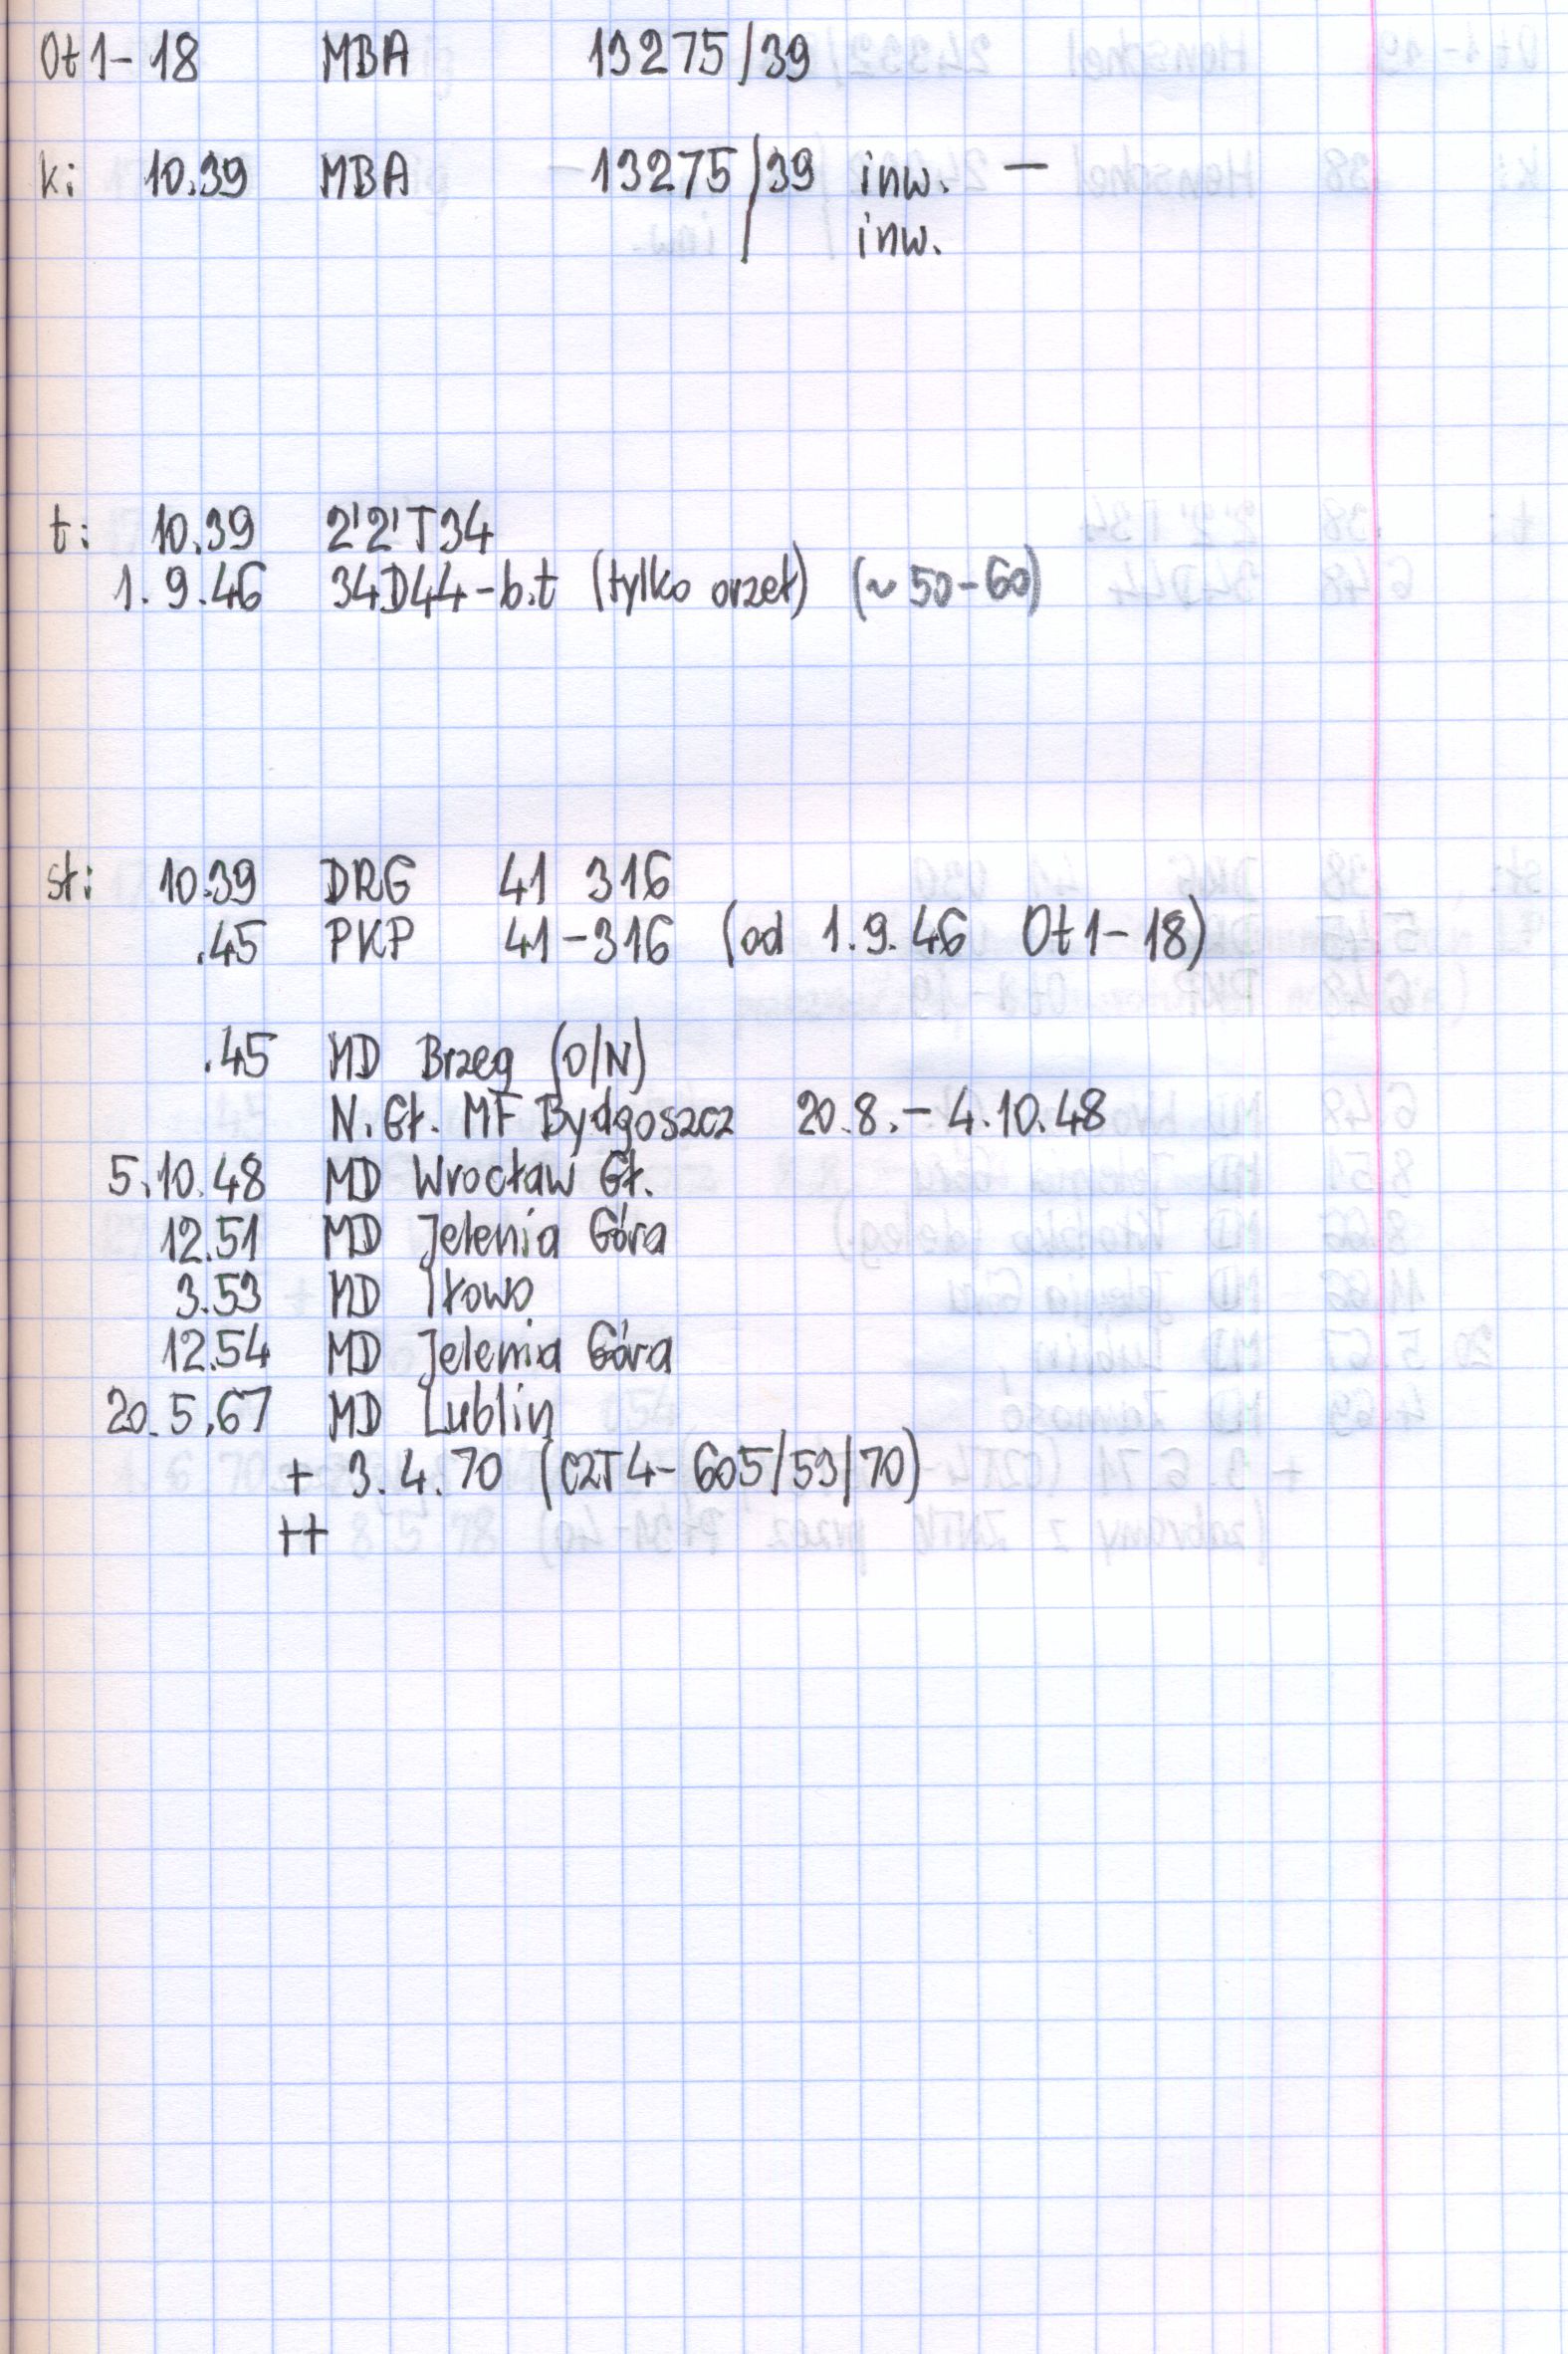 Ot1-18 MBA 13275/39
k: 10.39 MBA 13275/39 inw. —
inw.
t: 10.39 2'2'T34
1.9.46 34D44-b.t (tylko orzeł) (~50-60)
st: 10.39 DRG 41 316
.45 PKP 41-316 (od 1.9.46 Ot1-18)
.45 MD Brzeg (O/N)
N.Gł. MF Bydgoszcz 20.8.-4.10.48
5.10.48 MD Wrocław Gł.
12.51 MD Jelenia Góra
3.53 MD Iłowo
12.54 MD Jelenia Góra
20.5.67 MD Lublin
+ 3.4.70 (C2T4-605/53/70)
++